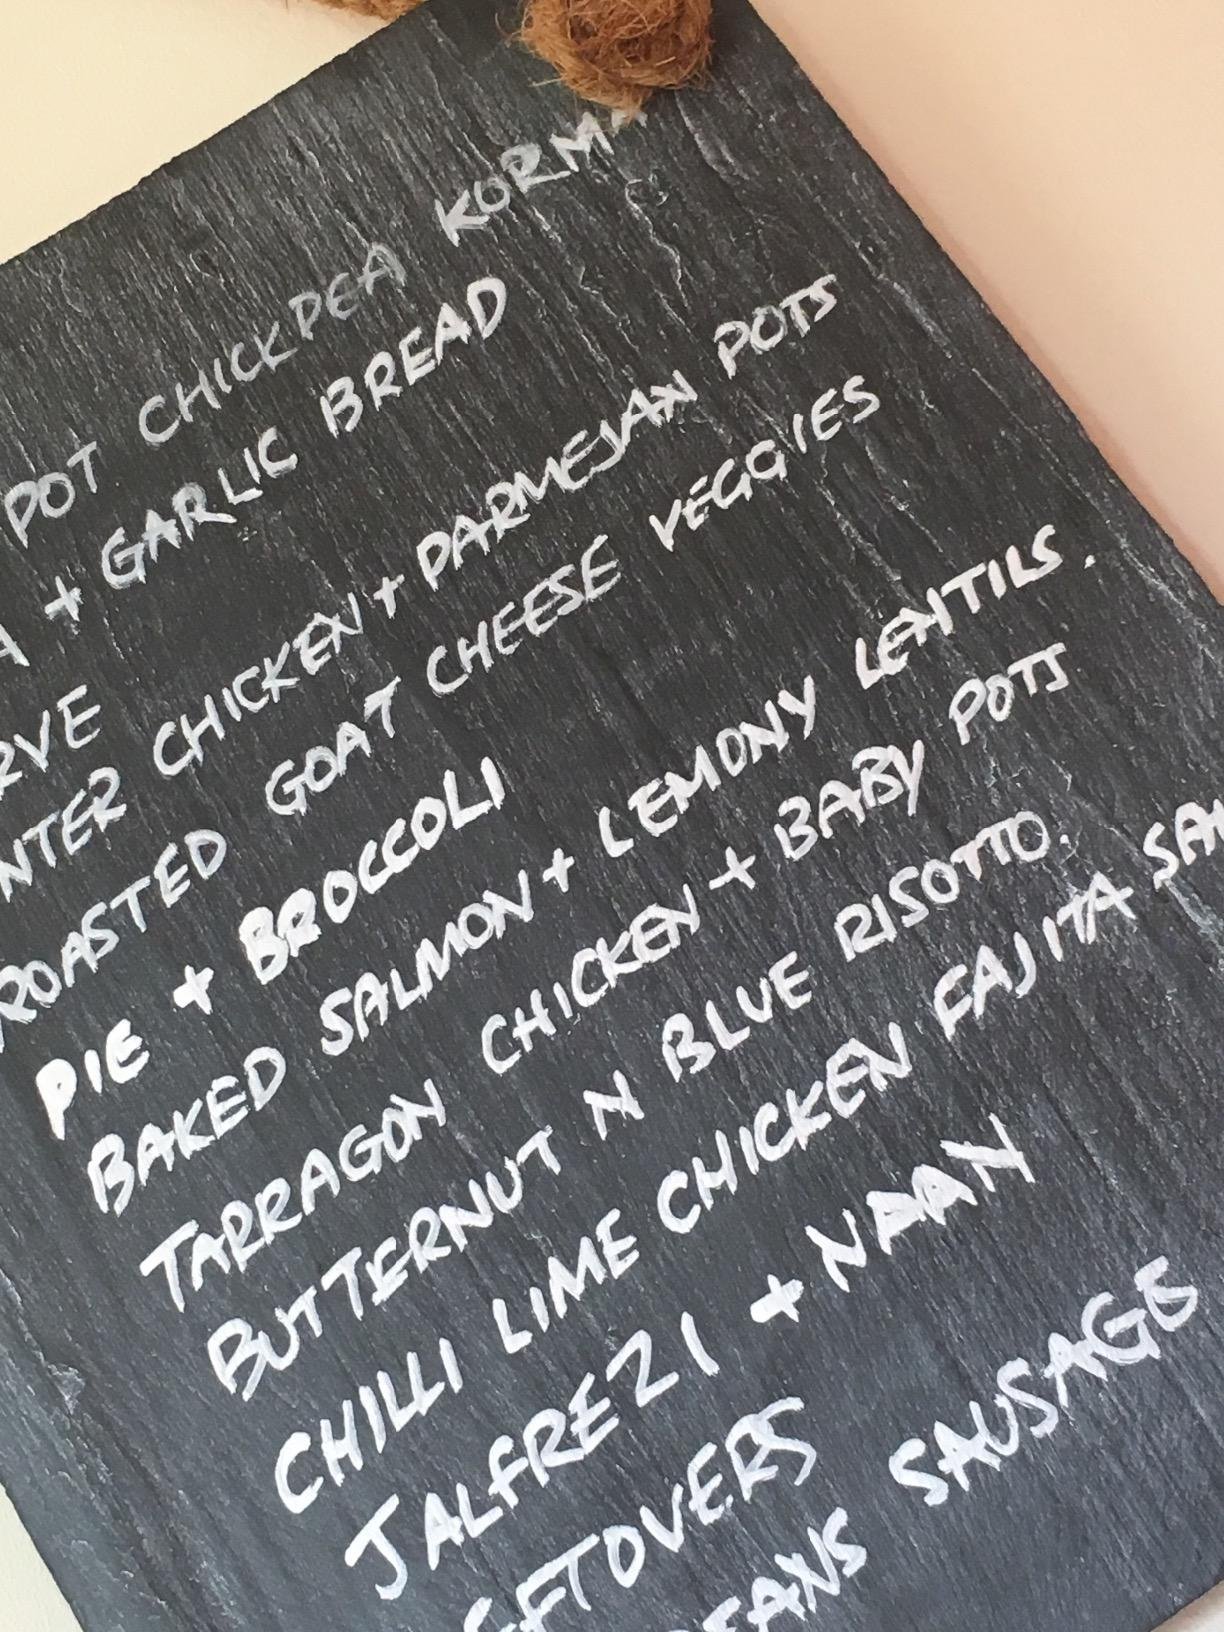 POT CHICKPEA KORM
+ GARLIC BREAD
RVE
NTER CHICKEN + PARMESAN POTS
ROASTED GOAT CHEESE VEGGIES
PIE + BROCCOLI
BAKED SALMON + LEMONY LENTILS.
TARRAGON CHICKEN + BABY POTS
BUTTERNUT N BLUE RISOTTO.
CHILLI LIME CHICKEN FAJITA SA
JALFREZI + NAAN
EFTOVERS
EANS SAUSAGE